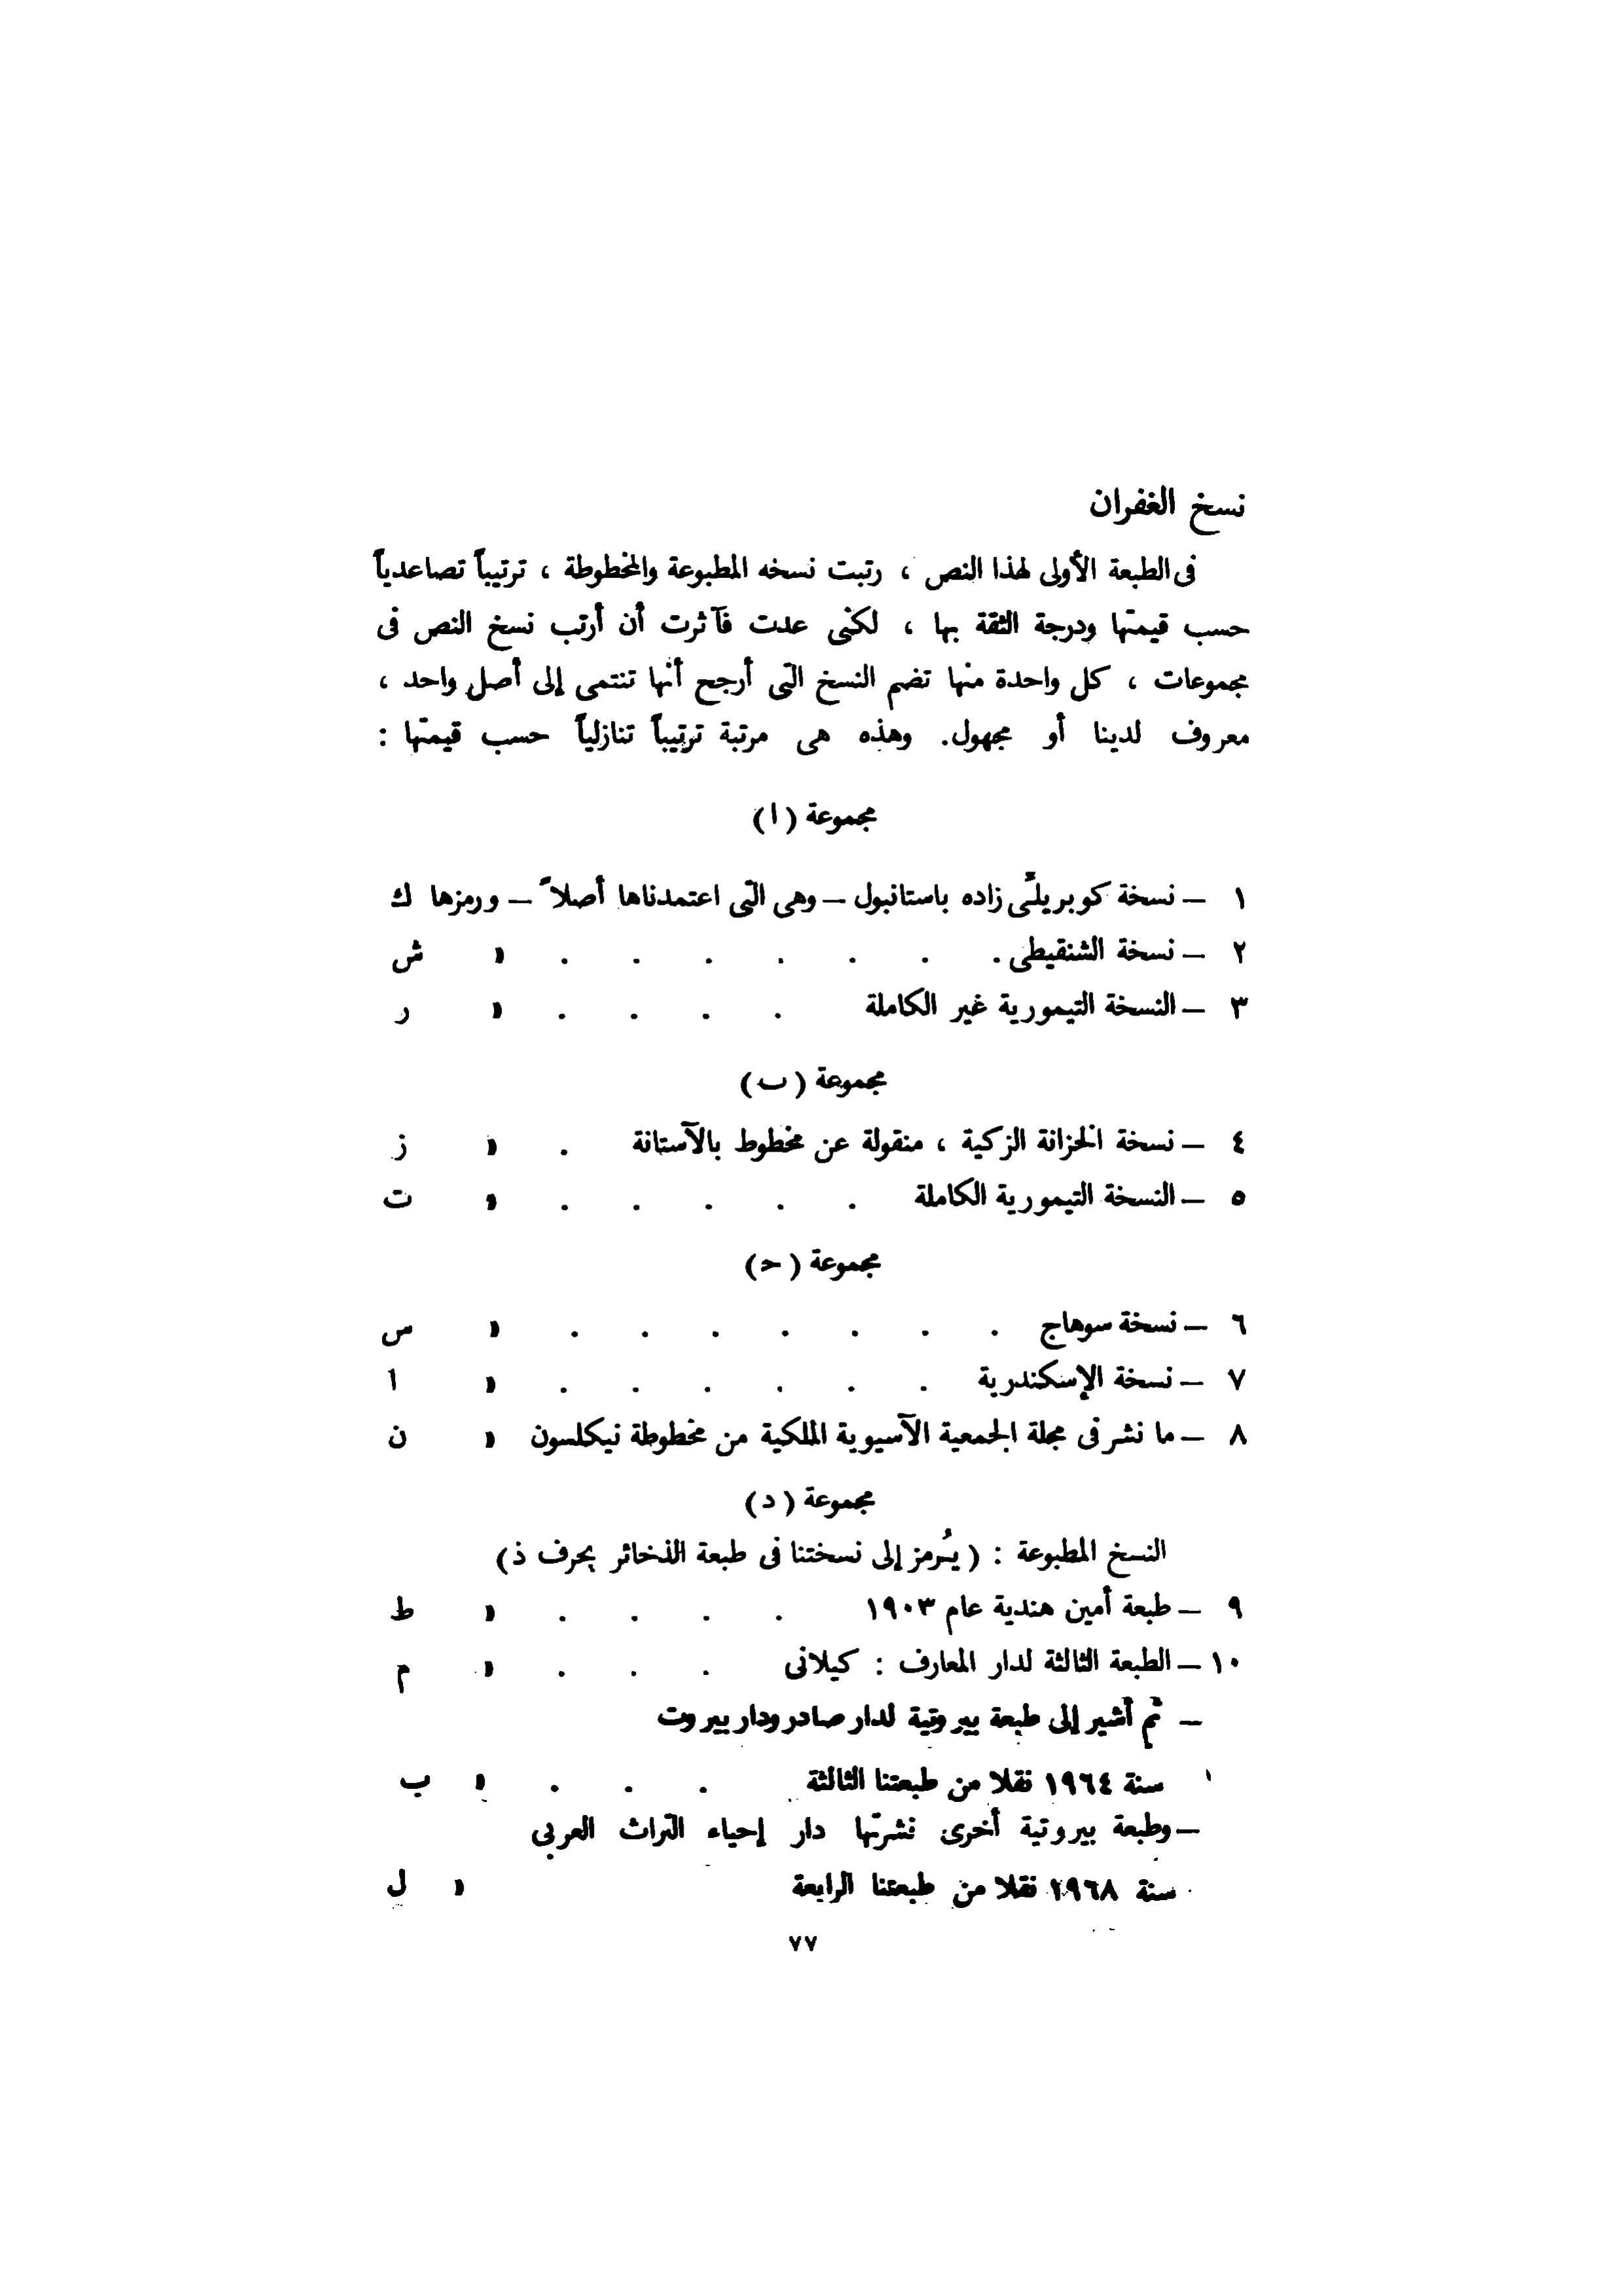 نسخ الغفران
فى الطبعة الأولى لهذا النص ، رتبت نسخه المطبوعة والمخطوطة ، ترتيباً تصاعدياً
حسب قيمتها ودرجة الثقة بها ، لكنى عدت فآثرت أن أرتب نسخ النص فى
مجموعات ، كل واحدة منها تضم النسخ التى أرجح أنها تنتمى إلى أصل واحد ،
معروف لدينا أو مجهول. وهذه هى مرتبة ترتيباً تنازلياً حسب قيمتها :
مجموعة ( ا )
١ – نسخة كوبريلّى زاده باستانبول – وهى التى اعتمدناها أصلاً – ورمزها ك
٢ – نسخة الشنقيطى . . . . . . . » ش
٣ – النسخة التيمورية غير الكاملة . . . . » ر
مجموعة ( ب )
٤ – نسخة الخزانة الزكية ، منقولة عن مخطوط بالآستانة . » ز
٥ – النسخة التيمورية الكاملة . . . . . » ت
مجموعة ( ح )
٦ – نسخة سوهاج . . . . . . . » س
٧ – نسخة الإسكندرية . . . . . . » ا
٨ – ما نشر فى مجلة الجمعية الآسيوية الملكية من مخطوطة نيكلسون » ن
مجموعة ( د )
النسخ المطبوعة : ( يُرمز إلى نسختنا فى طبعة الذخائر بحرف ذ )
٩ – طبعة أمين هندية عام ١٩٠٣ . . . . » ط
١٠ – الطبعة الثالثة لدار المعارف : كيلانى . . . » م
– ثم أشير إلى طبعة بيروتية لدار صادر ودار بيروت
سنة ١٩٦٤ نقلا من طبعتنا الثالثة . . . » ب
– وطبعة بيروتية أخرى نشرتها دار إحياء التراث العربى
سنة ١٩٦٨ نقلا من طبعتنا الرابعة » ل
٧٧